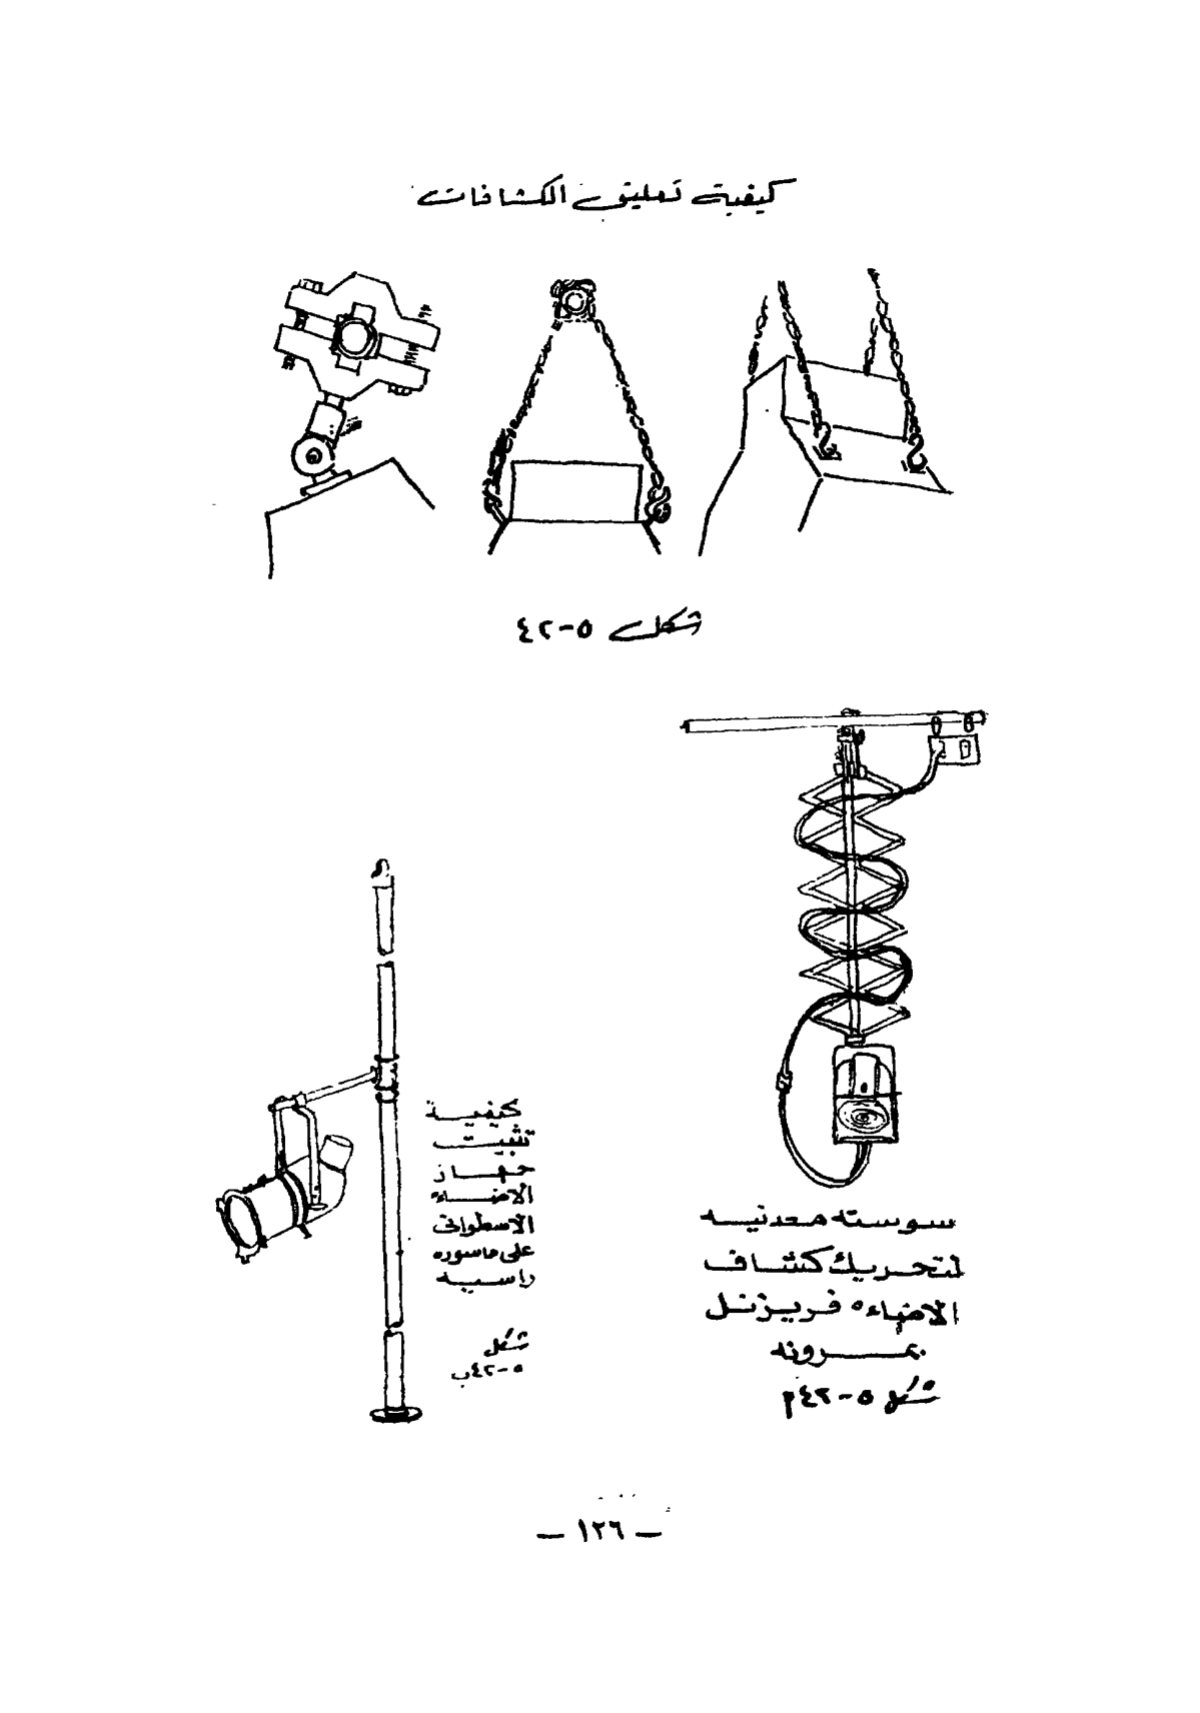 كيفية تعليق الكشافات
شكل ٥-٤٢
سوسته معدنيه
لتحريك كشاف
الاضاءه فريزنل
بمرونه
شكل ٥-٤٢م
كيفية
تثبيت
جهاز
الاضاءه
الاسطوانى
على ماسوره
راسيه
شكل
٥-٤٢ب
— ١٢٦ —